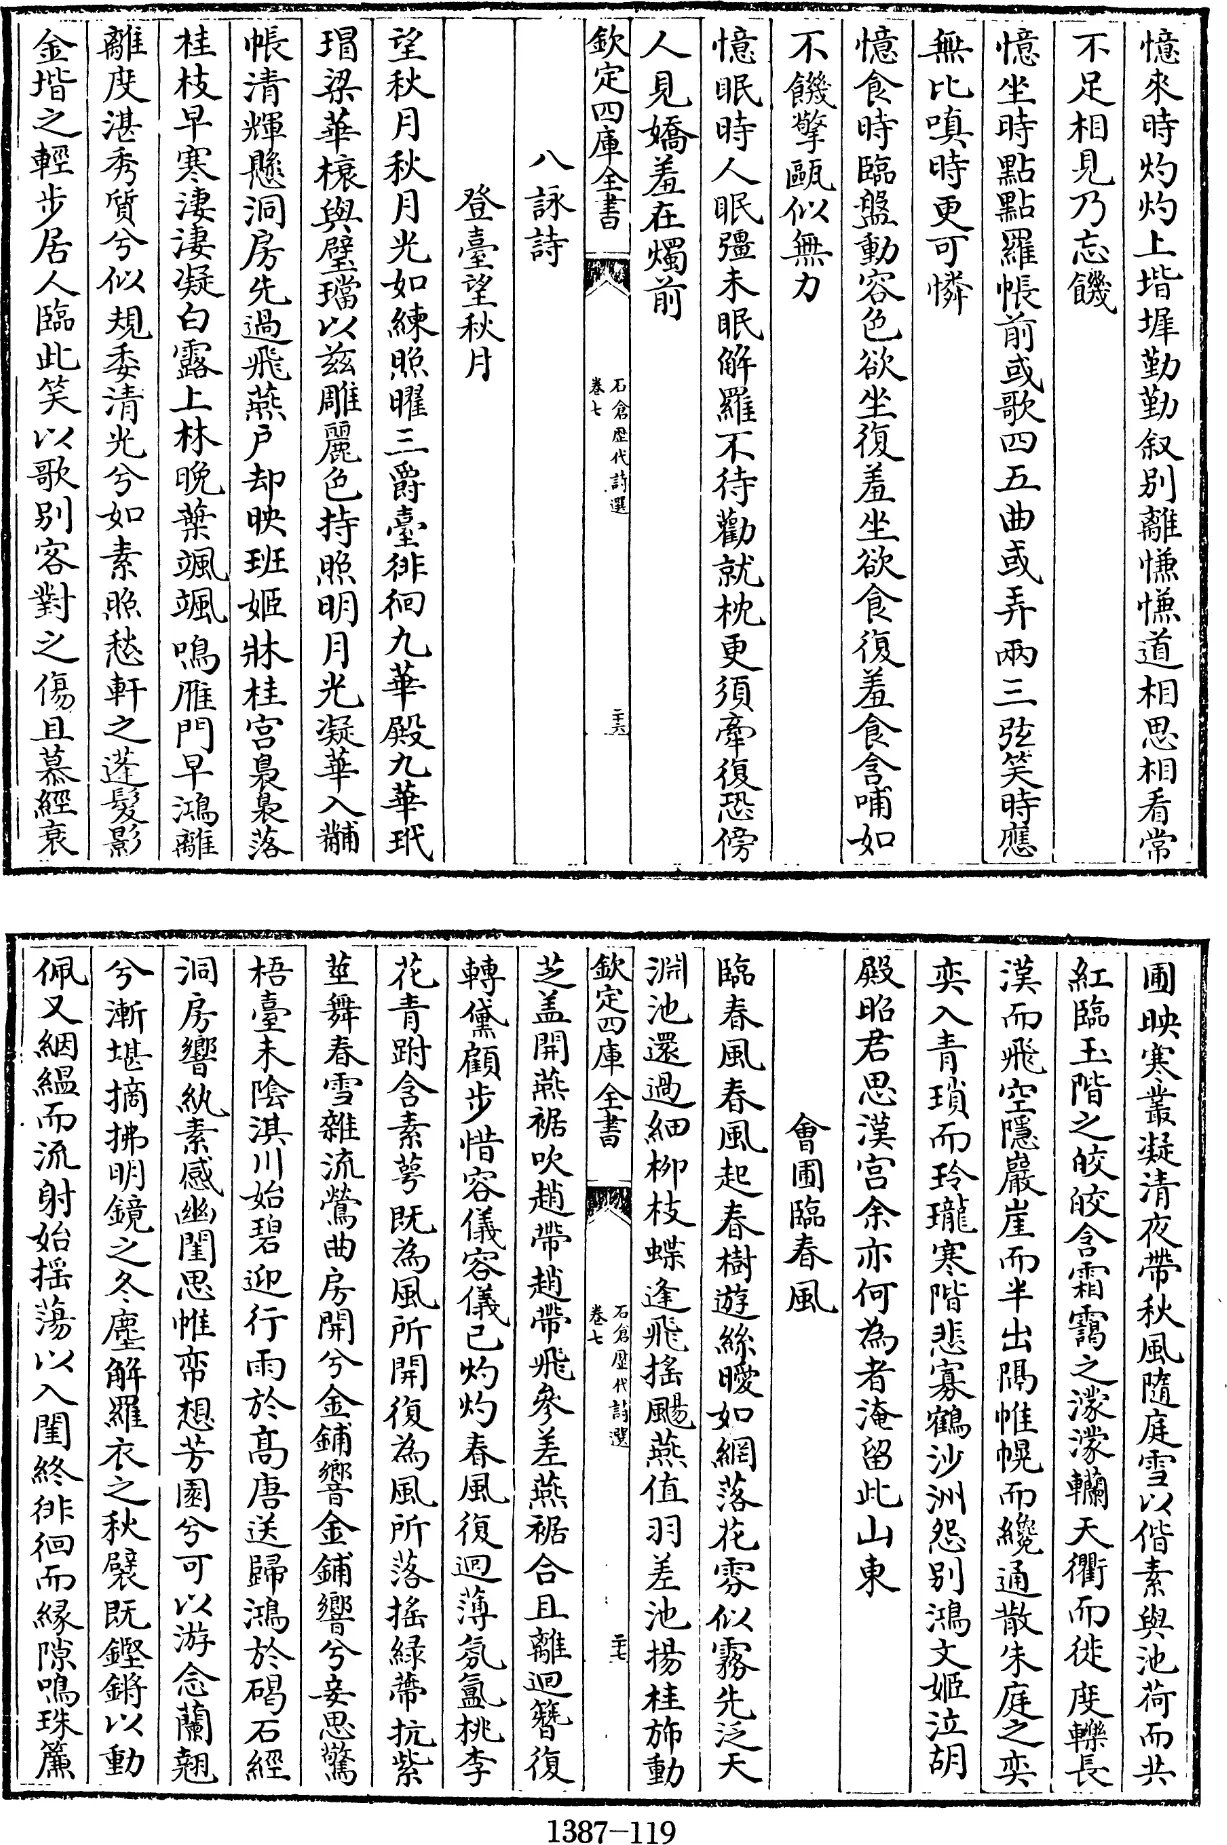 憶來時灼灼上堦墀勤勤叙别離慊慊道相思相看常
不足相見乃忘饑
憶坐時點點羅帳前或歌四五曲或弄兩三弦笑時應
無比嗔時更可憐
憶食時臨盤動容色欲坐復羞坐欲食復羞食含哺如
不饑擎甌似無力
憶眠時人眠彊未眠解羅不待勸就枕更須牽復恐傍
人見嬌羞在燭前
欽定四庫全書
石倉歷代詩選
卷七
二十六
八詠詩
登臺望秋月
望秋月秋月光如練照曜三爵臺徘徊九華殿九華玳
瑁梁華榱與璧璫以兹雕麗色持照明月光凝華入黼
帳清輝懸洞房先過飛燕户却映班姬牀桂宫裊裊落
桂枝早寒淒淒凝白露上林晚葉颯颯鳴雁門早鴻離
離度湛秀質兮似規委清光兮如素照愁軒之蓬髮影
金堦之輕步居人臨此笑以歌别客對之傷且慕經衰
圃映寒叢凝清夜帶秋風隨庭雪以偕素與池荷而共
紅臨玉階之皎皎含霜靄之濛濛轥天衢而徙度轢長
漢而飛空隱巖崖而半出隔帷幌而纔通散朱庭之奕
奕入青瑣而玲瓏寒階悲寡鶴沙洲怨别鴻文姬泣胡
殿昭君思漢宫余亦何為者淹留此山東
會圃臨春風
臨春風春風起春樹遊絲曖如網落花雰似霧先泛天
淵池還過細柳枝蝶逢飛搖颺燕值羽差池揚桂斾動
欽定四庫全書
石倉歷代詩選
卷七
二十七
芝盖開燕裾吹趙帶趙帶飛參差燕裾合且離迴簪復
轉黛顧步惜容儀容儀已灼灼春風復迴薄氛氲桃李
花青跗含素萼既為風所開復為風所落搖綠蔕抗紫
莖舞春雪雜流鶯曲房開兮金鋪響金鋪響兮妾思驚
梧臺未陰淇川始碧迎行雨於髙唐送歸鴻於碣石經
洞房響紈素感幽閨思帷帟想芳園兮可以游念蘭翹
兮漸堪摘拂明鏡之冬塵解羅衣之秋襞既鏗鏘以動
佩又絪緼而流射始搖蕩以入閨終徘徊而緣隙鳴珠簾
1387-119